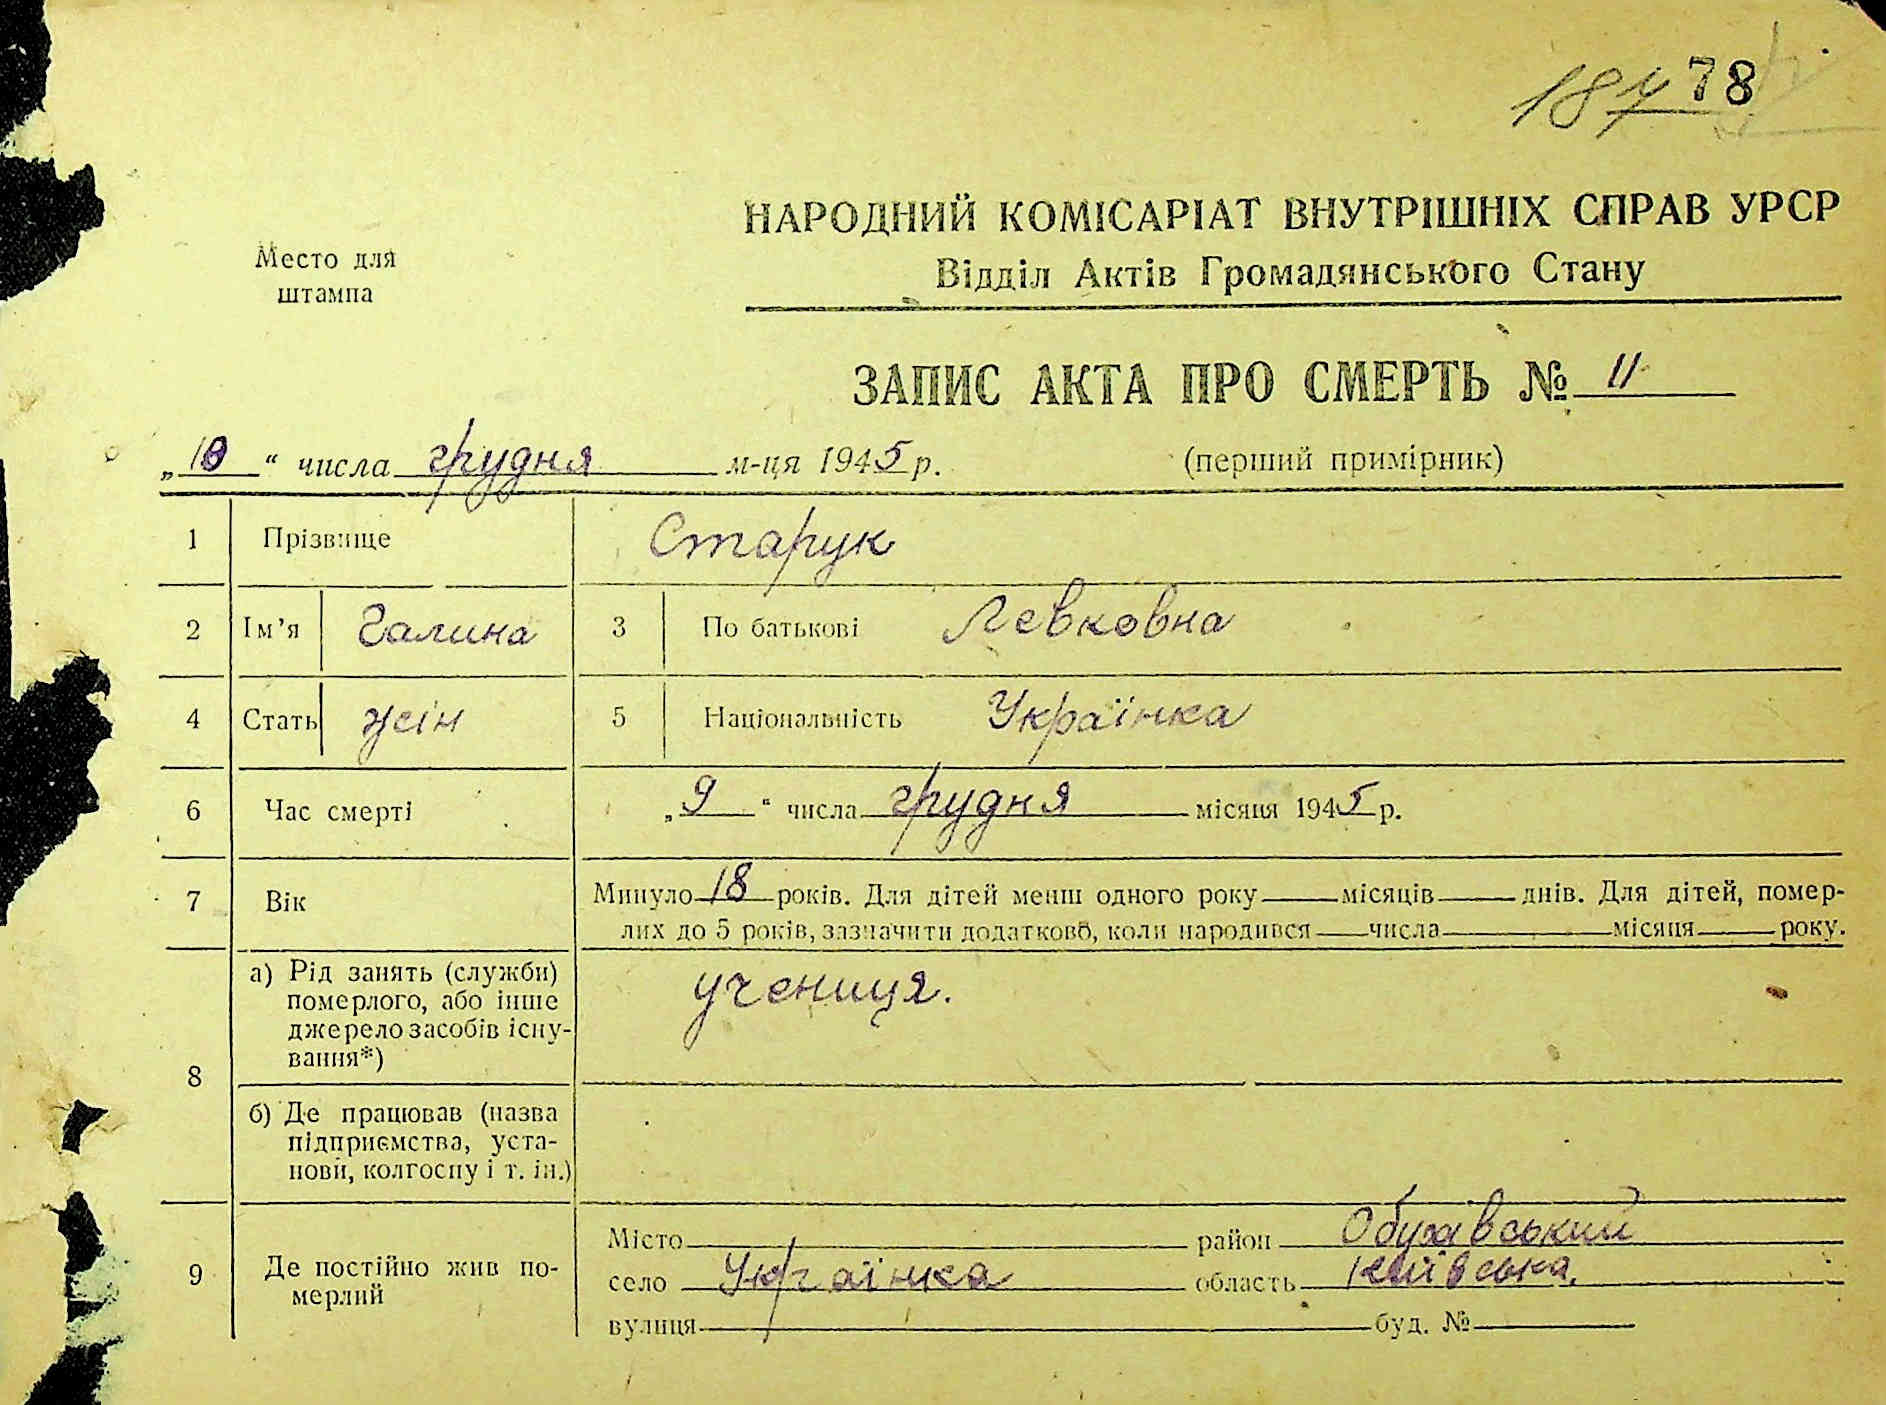 187 78
НАРОДНИЙ КОМІСАРІАТ ВНУТРІШНІХ СПРАВ УРСР
Место для
штампа
Відділ Актів Громадянського Стану
ЗАПИС АКТА ПРО СМЕРТЬ № 11
„10“ числа грудня м-ця 1945 р.
(перший примірник)
1 Прізвище Старук
2 Ім’я Галина 3 По батькові Левковна
4 Стать жін 5 Національність Українка
6 Час смерті „9“ числа грудня місяця 1945 р.
7 Вік Минуло 18 років. Для дітей менш одного року місяців днів. Для дітей, помер-
лих до 5 років, зазначити додатково, коли народився числа місяця року.
8
а) Рід занять (служби)
померлого, або інше
джерело засобів існу-
вання*)
учениця.
б) Де працював (назва
підприємства, уста-
нови, колгоспу і т. ін.)
9 Де постійно жив по-
мерлий
Місто район Обухівський
село Українка область Київська,
вулиця буд. №